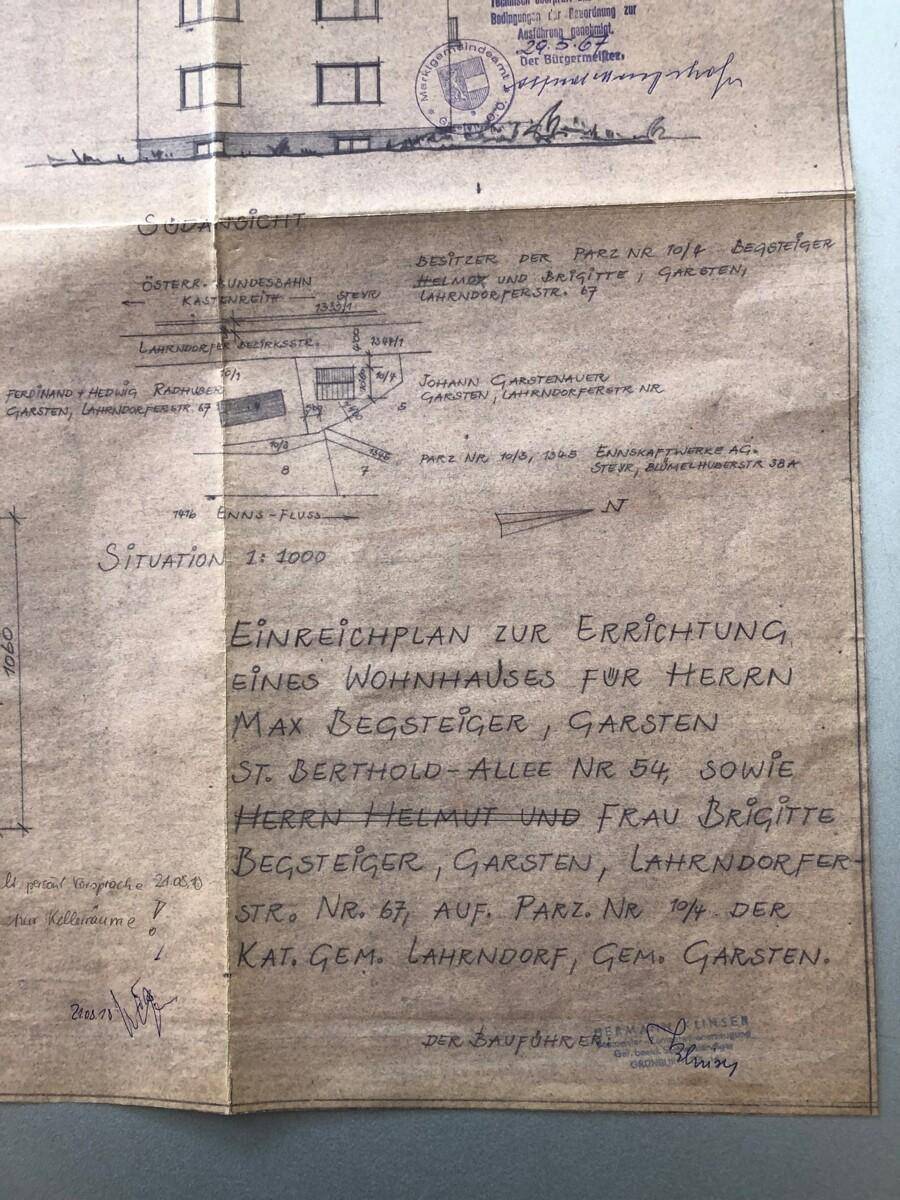 Technisch überprüft
Bedingungen der Bauordnung zur
Ausführung genehmigt.
29.5.67
Der Bürgermeister:
Marktgemeindeamt
SÜDANSICHT
BESITZER DER PARZ NR 10/4 BEGSTEIGER
HELMUT UND BRIGITTE, GARSTEN,
LAHRNDORFERSTR. 67
ÖSTERR. BUNDESBAHN
KASTENREITH STEYR
1333/1
LAHRNDORFER BEZIRKSSTR. 1347/1
10/1 10/4
FERDINAND + HEDWIG RADHUBER
GARSTEN, LAHRNDORFERSTR. 67
JOHANN GARSTENAUER
GARSTEN, LAHRNDORFERSTR NR
5
10/3 1345
8 7
PARZ NR 10/3, 1345 ENNSKAFTWERKE AG.
STEYR, BLÜMELHUBERSTR 38A
1416 ENNS-FLUSS
N
SITUATION 1:1000
1060
EINREICHPLAN ZUR ERRICHTUNG
EINES WOHNHAUSES FÜR HERRN
MAX BEGSTEIGER, GARSTEN
ST. BERTHOLD-ALLEE NR 54, SOWIE
HERRN HELMUT UND FRAU BRIGITTE
BEGSTEIGER, GARSTEN, LAHRNDORFER-
STR. NR. 67, AUF. PARZ. NR 10/4 DER
KAT. GEM. LAHRNDORF, GEM. GARSTEN.
lt persönl Vorsprache 21.08.13
nur Kellerräume!
DER BAUFÜHRER: